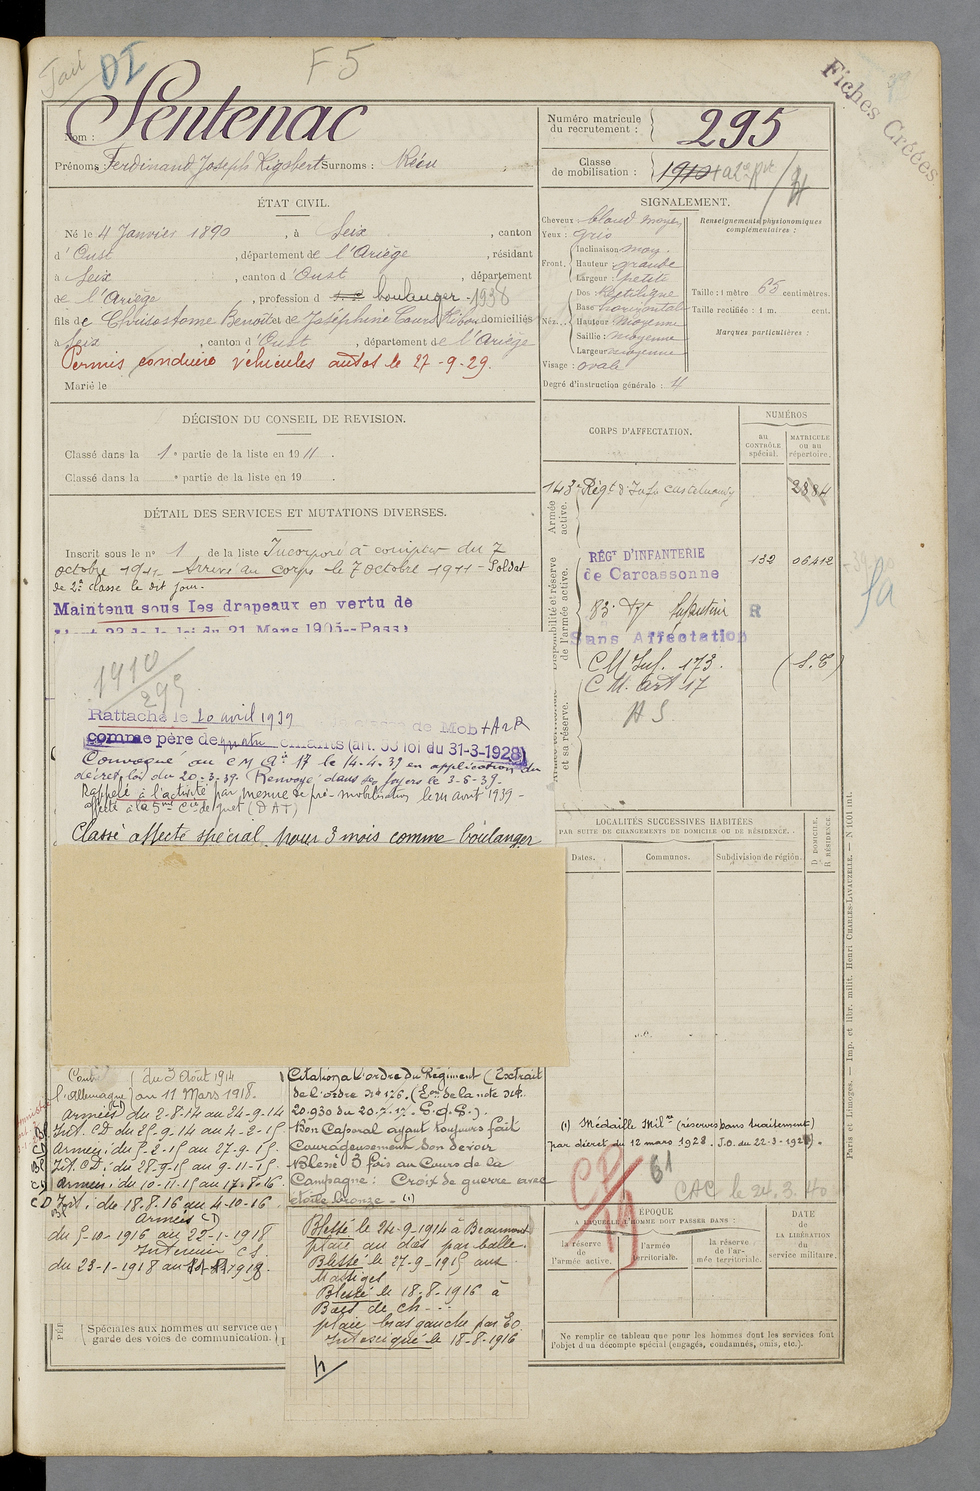 Fait
DI
F5
Fiches Créées
Nom : Sentenac
Prénoms : Ferdinand Joseph Rigobert Surnoms : Néeu
Numéro matricule du recrutement : 295
Classe de mobilisation : 1910
ÉTAT CIVIL.
Né le 4 Janvier 1890, à Seix, canton
d'Oust, département de l'Ariège, résidant
à Seix, canton d'Oust, département
de l'Ariège, profession d boulanger - 1938
fils de Chrisostome Benoît et de Joséphine domiciliés
à Seix, canton d'Oust, département de l'Ariège
Permis conduire véhicules autos le 27-9-29.
Marié le
SIGNALEMENT.
Cheveux : blond moyen
Yeux : gris
Front. Inclinaison moy.
Hauteur : grande
Largeur : petite
Nez. Dos : Rectiligne
Base horizontale
Hauteur moyenne
Saillie : moyenne
Largeur moyenne
Visage : ovale
Degré d'instruction générale : 4
Renseignements physionomiques
complémentaires :
Taille : 1 mètre 65 centimètres.
Taille rectifiée : 1 m. cent.
Marques particulières :
DÉCISION DU CONSEIL DE REVISION.
Classé dans la 1e partie de la liste en 1911.
Classé dans la e partie de la liste en 19 .
DÉTAIL DES SERVICES ET MUTATIONS DIVERSES.
Inscrit sous le no 1 de la liste Incorporé à compter du 7
octobre 1911. Arrivé au corps le 7 octobre 1911 - Soldat
de 2e classe le dit jour.
Maintenu sous les drapeaux en vertu de
l'art 33 de la loi du 21 Mars 1905 -- Passé
CORPS D'AFFECTATION.
NUMÉROS
AU CONTRÔLE spécial.
MATRICULE OU AU répertoire.
Armée active.
143e Régt d'Infie Castelnaudary 2884
Disponibilité et réserve de l'armée active.
RÉGT D'INFANTERIE
de Carcassonne 132 06412
83e Rgt Infanterie R
Sans Affectation
CM Inf. 173. (S.T)
CM. Art 17
et sa réserve.
1910
295
Rattaché le 20 avril 1939 de Mob + A2R
comme père de quatre enfants (art. 58 loi du 31-3-1928)
Convoqué au CM Aie 17 le 14-4-39 en application du
décret loi du 20-3-39. Renvoyé dans ses foyers le 3-6-39-
Rappelé à l'activité par mesure de pré-mobilisation le avril 1939 -
affecté à la 5me Cie de guet (DAT)
Classé affecté spécial pour 3 mois comme boulanger
LOCALITÉS SUCCESSIVES HABITÉES
PAR SUITE DE CHANGEMENTS DE DOMICILE OU DE RÉSIDENCE.
Dates.
Communes.
Subdivision de région.
D. DOMICILE,
R. RÉSIDENCE
Paris et Limoges. — Imp. et libr. milit. Henri CHARLES-LAVAUZELLE. — N 1.01 int.
Contre l'Allemagne du 3 Août 1914
au 11 Mars 1918.
Armées du 2-8-14 au 24-9-14
Int. CD du 25-9-14 au 4-2-15
Armées : du 5-2-15 au 27-9-15
Int. CD : du 28-9-15 au 9-11-15
Armées : du 10-11-15 au 17-8-16
Int : du 18-8-16 au 4-10-16
Armées
du 5-10-1916 au 22-1-1918
Intérieur CS
du 23-1-1918 au 1918.
Citation à l'ordre du Régiment (Extrait
de l'ordre No 176. (Eon de la note No
20.930 du 20-7-17. G.Q.G.).
Bon Caporal ayant toujours fait
Courageusement son devoir
Blessé 3 fois au Cours de la
Campagne : Croix de guerre avec
étoile bronze - (1)
Blessé le 24-9-1914 à Beaumont
plaie au dos par balle.
Blessé le 27-9-1915 aux
Massiges
Blessé le 18-8-1916 à
Bois de Ch--
plaie bras gauche par EO
Intoxiqué le 18-8-1916
(1) Médaille Milre (réserves sans traitement)
par décret du 12 mars 1928. J.O. du 22-3-1928.
61
CAC le 24.3.40
ÉPOQUE
A LAQUELLE L'HOMME DOIT PASSER DANS :
la réserve de l'armée active.
l'armée territoriale.
la réserve de l'armée territoriale.
DATE
de
LA LIBÉRATION
du
service militaire.
Spéciales aux hommes du service de
garde des voies de communication.
Ne remplir ce tableau que pour les hommes dont les services font
l'objet d'un décompte spécial (engagés, condamnés, omis, etc.).